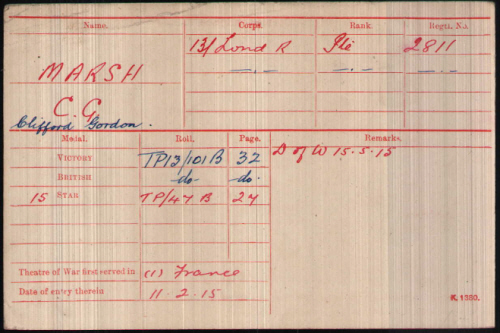 Name. Corps. Rank. Regtl. No.
MARSH 13/Lond R Pte 2811
C. G. —.— —.— —.—
Clifford Gordon.
Medal. Roll. Page. Remarks.
VICTORY TP13/101B 32 D of W 15.5.15
BRITISH -do- do.
15 STAR TP/47 B 24
Theatre of War first served in (1) France
Date of entry therein 11.2.15
K. 1380.